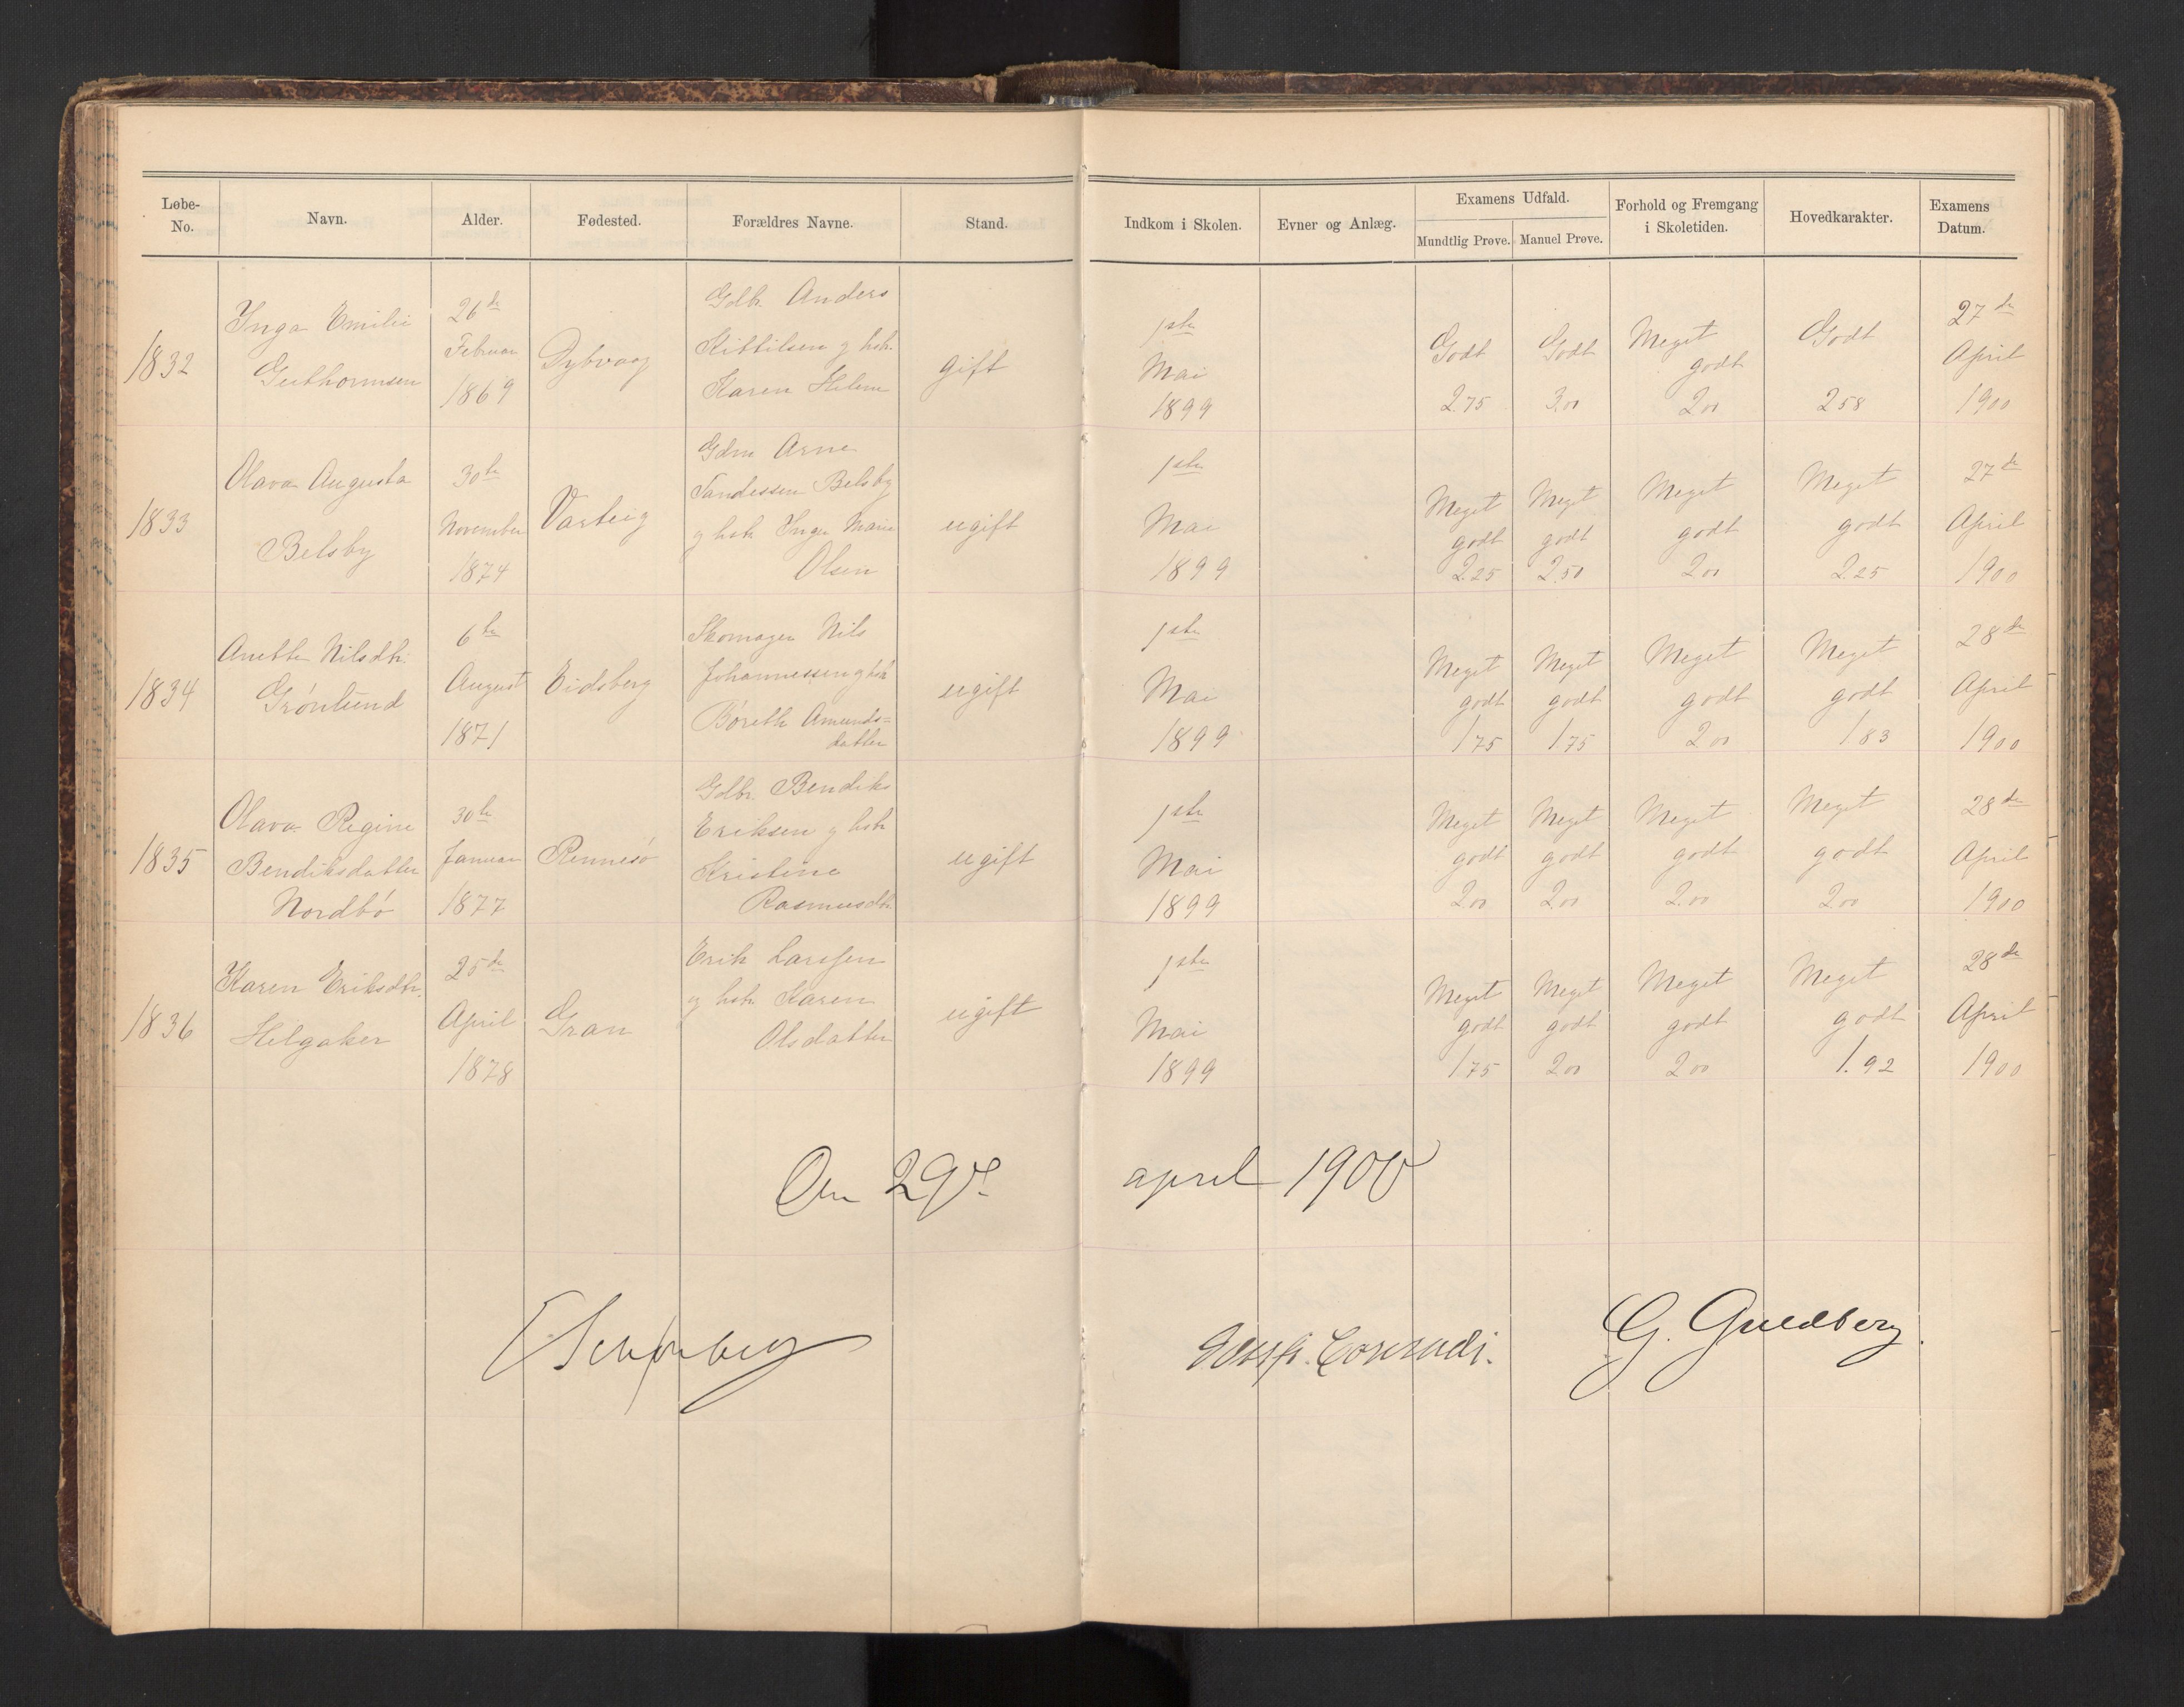 Løbe-No. Navn. Alder. Fødested. Forældres Navne. Stand. Indkom i Skolen. Evner og Anlæg. Examens Udfald. Mundtlig Prøve. Manuel Prøve. Forhold og Fremgang i Skoletiden. Hovedkarakter. Examens Datum.
1832
Inga Emilie
Guthormsen
26de
Februar
1869
Dybvaag
Gdbr. Anders
Kittilsen og hstr.
Karen Helene
gift
1ste
Mai
1899
Godt
2.75
Godt
3.00
Meget
godt
2.00
Godt
2.58
27de
April
1900
1833
Olava Augusta
Belsby
30te
November
1874
Varteig
Gdm Arne
Belsby
og hstr Inger Marie
Olsen
ugift
1ste
Mai
1899
Meget
godt
2.25
Meget
godt
2.50
Meget
godt
2.00
Meget
godt
2.25
27de
April
1900
1834
Anette Nilsdtr.
Grønlund
6te
August
1871
Eidsberg
Skomager Nils
Johannessen og hstr
Børeth Amunds=
datter
ugift
1ste
Mai
1899
Meget
godt
1.75
Meget
godt
1.75
Meget
godt
2.00
Meget
godt
1.83
28de
April
1900
1835
Olava Regine
Bendiksdatter
Nordbø
30te
Januar
1877
Rennesø
Gdbr. Bendiks
Eriksen og hstr
Kristine
Rasmusdtr.
ugift
1ste
Mai
1899
Meget
godt
2.00
Meget
godt
2.00
Meget
godt
2.00
Meget
godt
2.00
28de
April
1900
1836
Karen Eriksdtr.
Helgaker
25de
April
1878
Gran
Erik Larssen
og hstr Karen
Olsdatter
ugift
1ste
Mai
1899
Meget
godt
1.75
Meget
godt
2.00
Meget
godt
2.00
Meget
godt
1.92
28de
April
1900
Den 29de april 1900
E Schønberg
Conradi.
G. Guldberg.